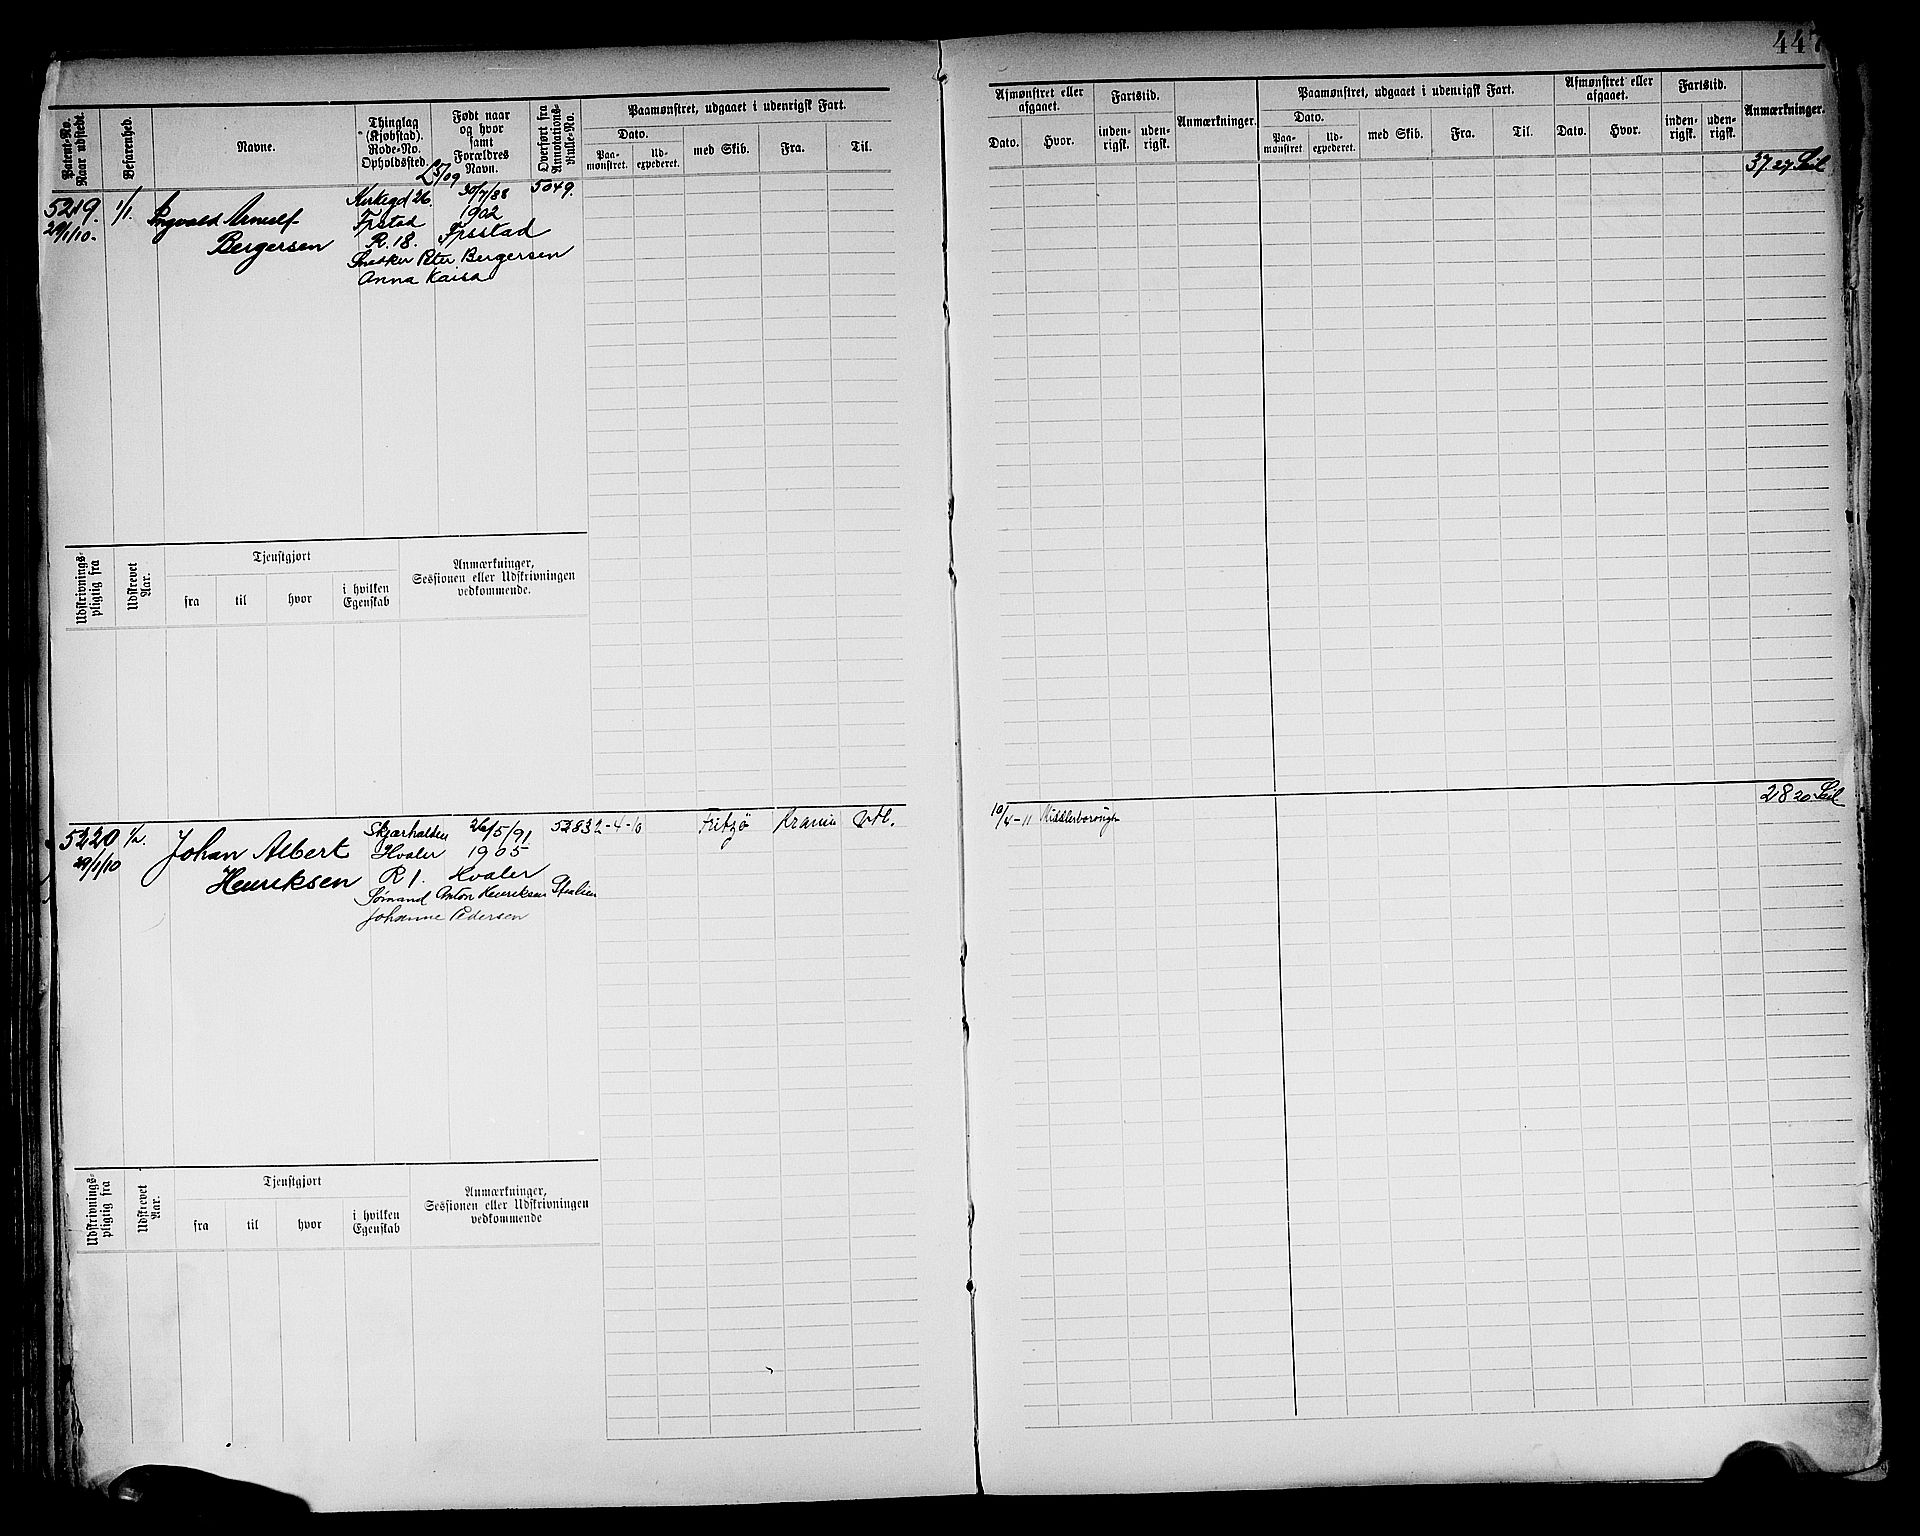 447
Patent-No. Naar udstedt.
Befarenhed.
Navne.
Thinglag (Kjøbstad). Rode-No. Opholdssted.
Født naar og hvor samt Forældres Navn.
Overført fra Annotations-Rulle-No.
Paamønstret, udgaaet i udenrigsk Fart.
Dato.
Paa-mønstret.
Ud-expederet.
med Skib.
Fra.
Til.
Afmønstret eller afgaaet.
Dato.
Hvor.
Fartstid.
inden-rigsk.
uden-rigsk.
Anmærkninger.
Paamønstret, udgaaet i udenrigsk Fart.
Dato.
Paa-mønstret
Ud-expederet.
med Skib.
Fra.
Til.
Afmønstret eller afgaaet.
Dato.
Hvor.
Fartstid.
inden-rigsk.
uden-rigsk.
Anmærkninger.
5219.
29/1/10.
1/1.
Ingvald Arnulf
Bergersen
Kirkegd 26.
Fpstad
R. 18.
30/7/88
1902
Fpsstad
Snedker Peter Bergersen
Anna Kaisa
5049.
37. 27
Udskrivnings-pligtig fra
Udskrevet Aar.
Tjenstgjort
fra
til
hvor
i hvilken Egenskab
Anmærkninger, Sessionen eller Udskrivningen vedkommende.
5220
29/1/10
1/2.
Johan Albert
Henriksen
Skjærhalden
Hvaler
R 1.
26/5/91
1905
Hvaler
Sømand Anton Henriksen
Johanne Pedersen
5283
2-4-10
Fritzø
10/4-11
28 20
Udskrivnings-pligtig fra
Udskrevet Aar.
Tjenstgjort
fra
til
hvor
i hvilken Egenskab
Anmærkninger, Sessionen eller Udskrivningen vedkommende